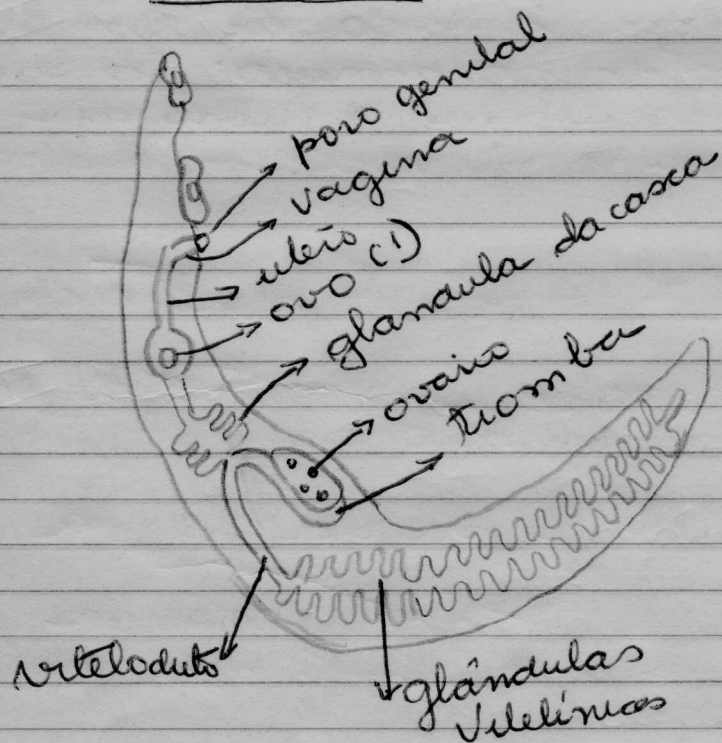 poro genital
vagina
utero
ovo (1)
glandula da casca
ovario
tromba
viteloduto
glândulas
Vitelínicas